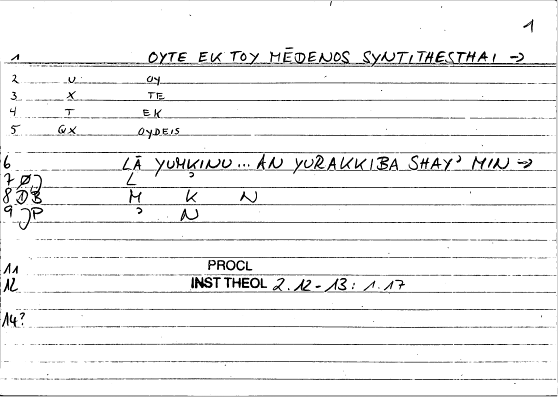 1
1 OYTE EK TOY MĒDENOS SYNTITHESTHAI →
2 U OY
3 X TE
4 T EK
5 QX OYDEIS
6 LĀ YUMKINU... AN YURAKKIBA SHAY' MIN →
7 L '
8 DB M K N
9 JP ' N
11 PROCL
12 INST THEOL 2.12-13: 1.17
14?